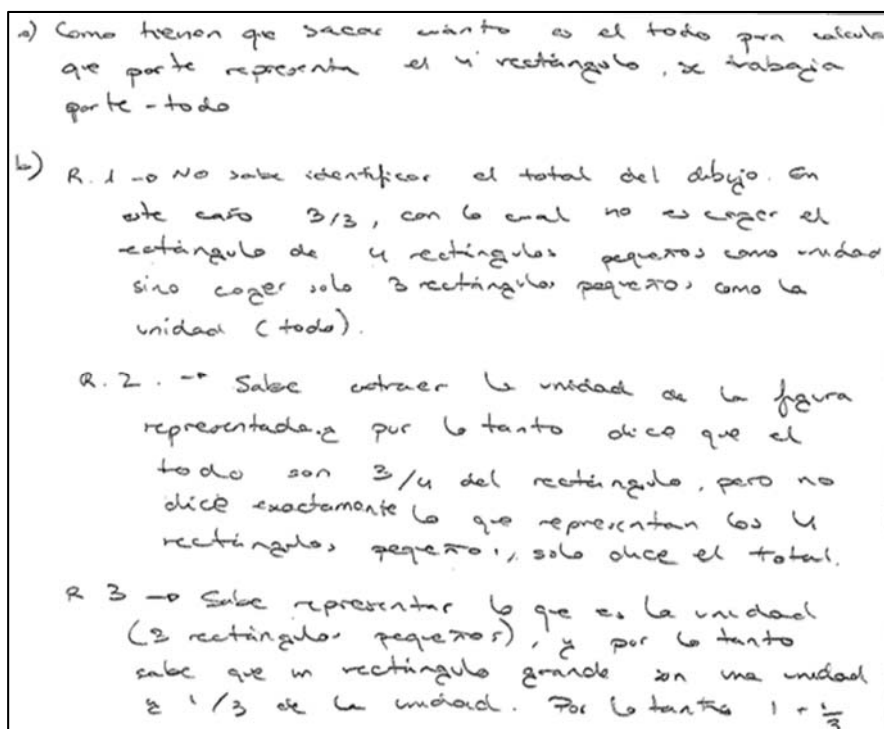 a) Como tienen que sacar cuánto es el todo para calcula
que parte representa el 4º rectángulo, se trabaja
parte-todo
b) R.1 → No sabe identificar el total del dibujo. En
este caso 3/3, con lo cual no es coger el
rectángulo de 4 rectángulos pequeños como unidad
sino coger solo 3 rectángulos pequeños como la
unidad (todo).
R.2. → Sabe extraer la unidad de la figura
representada y por lo tanto dice que el
todo son 3/4 del rectángulo, pero no
dice exactamente lo que representan los 4
rectángulos pequeños, solo dice el total.
R 3 → Sabe representar lo que es la unidad
(3 rectángulos pequeños), y por lo tanto
sabe que un rectángulo grande son una unidad
y 1/3 de la unidad. Por lo tanto 1 + 1/3